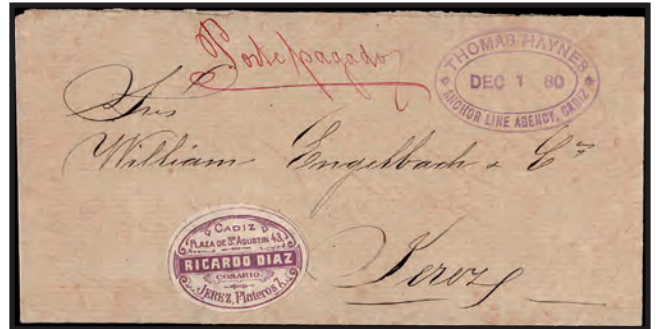 Porte pagado
THOMAS HAYNES
DEC 1 80
ANCHOR LINE AGENCY, CADIZ
Sres
William Engelbach & Cª
Jerez
CADIZ
PLAZA DE Sn AGUSTIN 43.
RICARDO DIAZ
COSARIO.
JEREZ, Plateros 7.